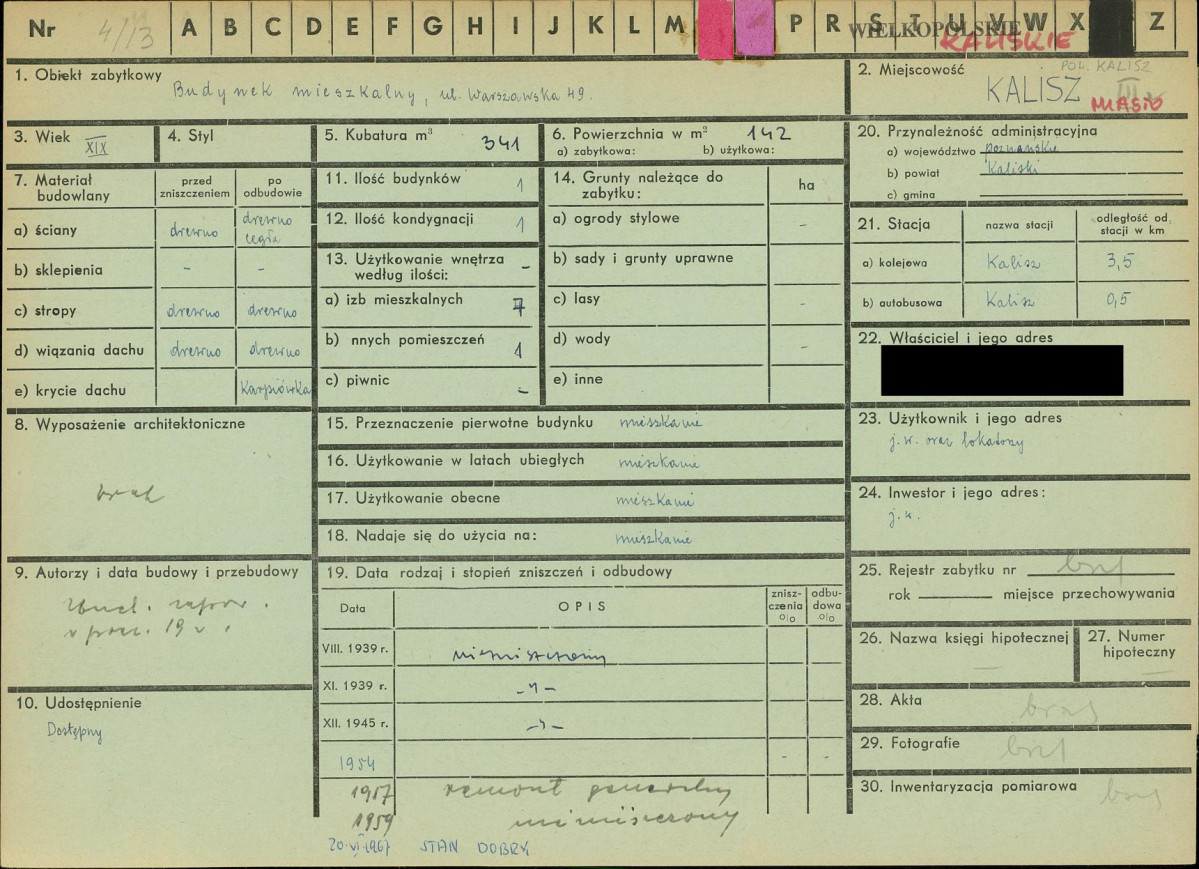 Nr 4/13 A B C D E F G H I J K L M P R S T U V W X Z
WIELKOPOLSKIE
KALISKIE
1. Obiekt zabytkowy
Budynek mieszkalny, ul. Warszawska 49.
2. Miejscowość
POW. KALISZ
KALISZ III
MIASTO
3. Wiek XIX
4. Styl
5. Kubatura m³ 341
6. Powierzchnia w m² 142
a) zabytkowa: b) użytkowa:
20. Przynależność administracyjna
a) województwo poznańskie
b) powiat Kaliski
c) gmina
7. Materiał budowlany
przed zniszczeniem
po odbudowie
a) ściany drewno drewno cegła
b) sklepienia - -
c) stropy drewno drewno
d) wiązania dachu drewno drewno
e) krycie dachu Karpiówka
11. Ilość budynków 1
12. Ilość kondygnacji 1
13. Użytkowanie wnętrza według ilości: -
a) izb mieszkalnych 7
b) nnych pomieszczeń 1
c) piwnic -
14. Grunty należące do zabytku: ha
a) ogrody stylowe -
b) sady i grunty uprawne
c) lasy -
d) wody -
e) inne
21. Stacja
nazwa stacji
odległość od stacji w km
a) kolejowa Kalisz 3,5
b) autobusowa Kalisz 0,5
22. Właściciel i jego adres
8. Wyposażenie architektoniczne
brak
15. Przeznaczenie pierwotne budynku mieszkanie
16. Użytkowanie w latach ubiegłych mieszkanie
17. Użytkowanie obecne mieszkanie
18. Nadaje się do użycia na: mieszkanie
23. Użytkownik i jego adres
j.w. oraz lokatorzy
24. Inwestor i jego adres:
j.w.
9. Autorzy i data budowy i przebudowy
w pocz. 19 w.
19. Data rodzaj i stopień zniszczeń i odbudowy
Data OPIS znisz-czenia o|o odbu-dowa o|o
VIII. 1939 r. niezniszczony
XI. 1939 r. -"-
XII. 1945 r. -"-
1954 - -
1957 remont generalny
1959 niezniszczony
20.VI.1967 STAN DOBRY
10. Udostępnienie
Dostępny
25. Rejestr zabytku nr brak
rok miejsce przechowywania
26. Nazwa księgi hipotecznej —
27. Numer hipoteczny —
28. Akta brak
29. Fotografie brak
30. Inwentaryzacja pomiarowa brak